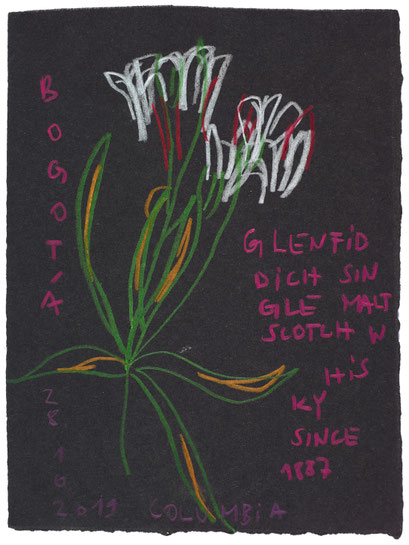 BOGOTÁ
GLENFiD
DiCH SiN
GLE MALT
SCOTCH W
HiS
KY
SiNCE
1887
28
10
2019 COLUMBiA